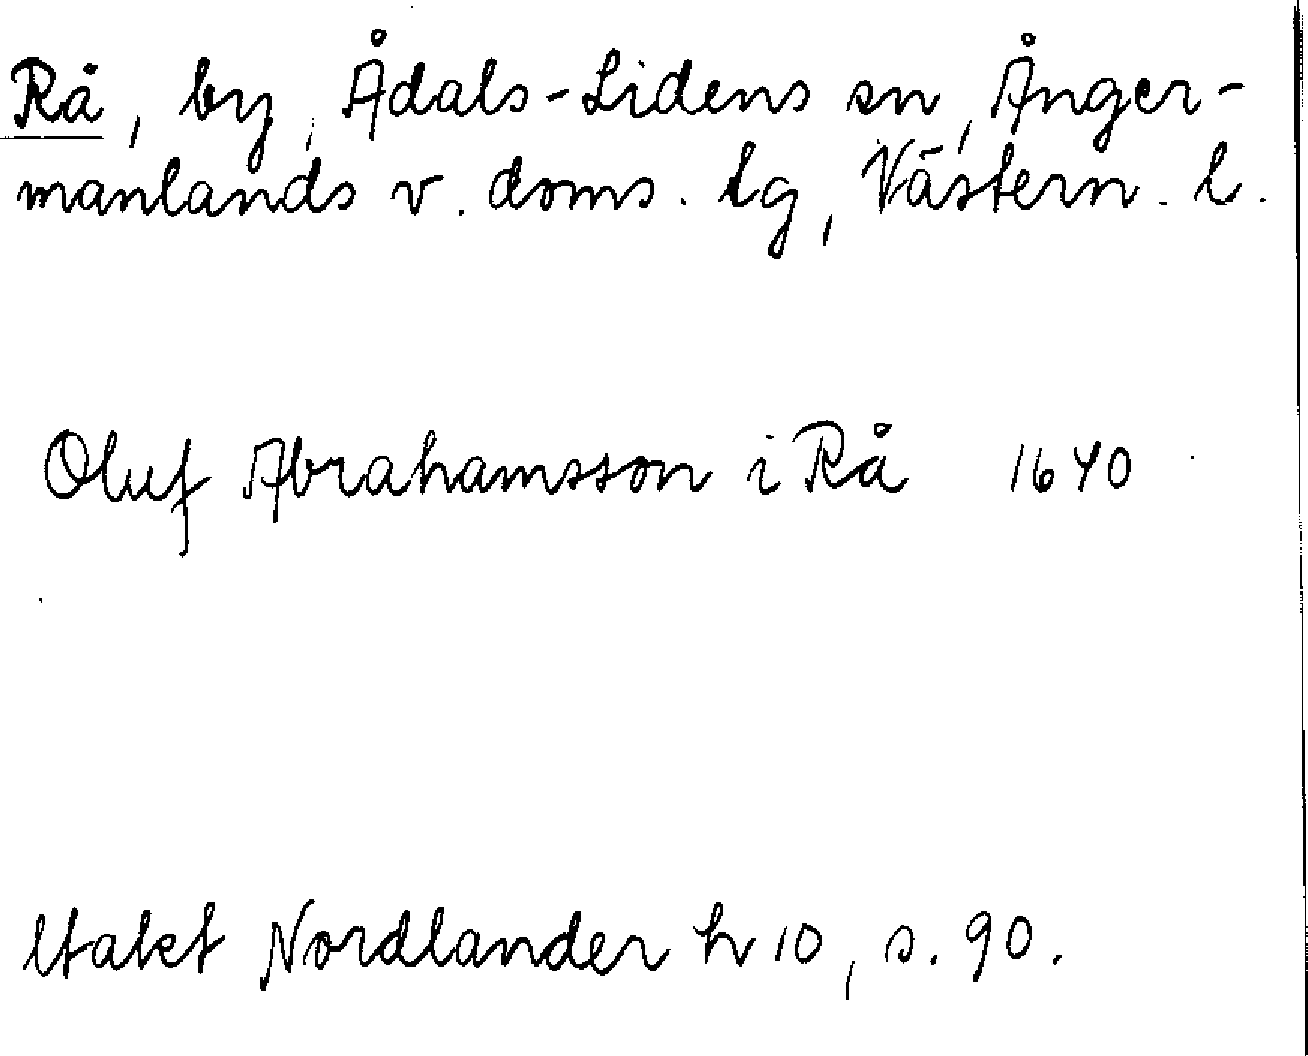 Rå, by, Ådals-Lidens sn, Ånger-
manlands v. doms. tg, Västern. l.
Oluf Abrahamsson i Rå 1640
Utakt Nordlander h 10, s. 90.